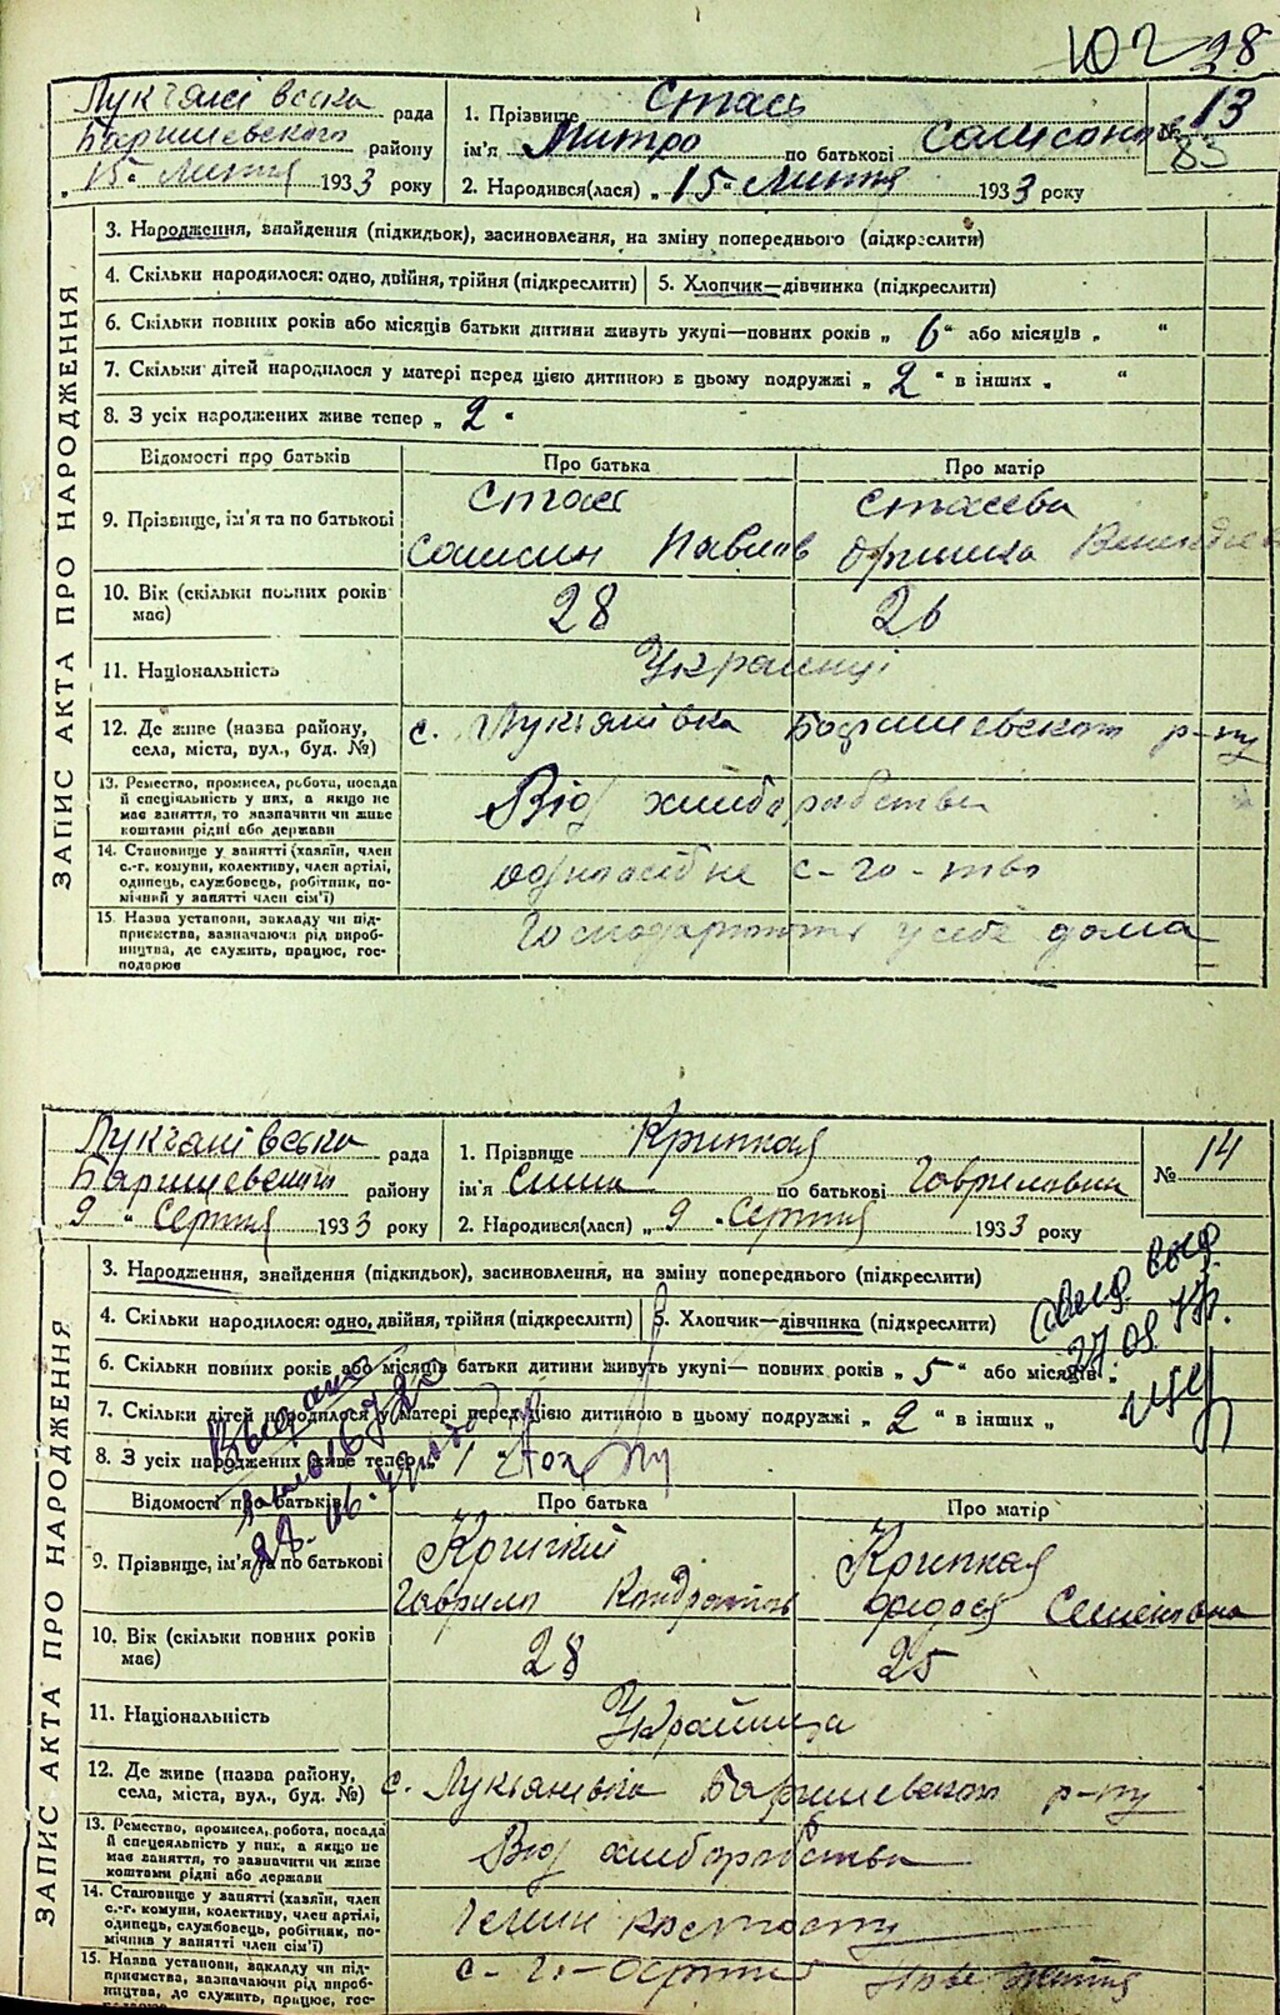 28
Лукʼянівська рада
Баришевского району
„15“ Липня 1933 року
1. Прізвище Стась
ім'я Митро по батькові Самсонов
2. Народився(лася) „15“ Липня 1933 року
№ 13
83
ЗАПИС АКТА ПРО НАРОДЖЕННЯ
3. Народження, знайдення (підкидьок), засиновлення, на зміну попереднього (підкреслити)
4. Скільки народилося: одно, двійня, трійня (підкреслити) 5. Хлопчик—дівчинка (підкреслити)
6. Скільки повних років або місяців батьки дитини живуть укупі—повних років „ 6 “ або місяців „ “
7. Скільки дітей народилося у матері перед цією дитиною в цьому подружжі „ 2 “ в інших „ “
8. З усіх народжених живе тепер „ 2 “
Відомості про батьків Про батька Про матір
Стась Стасева
9. Прізвище, ім'я та по батькові
Самсин Павлов Оришка
10. Вік (скільки повних років має) 28 26
11. Національність Украинці
12. Де живе (назва району, села, міста, вул., буд. №) с. Лукьянівка Баришевского р-ну
13. Ремество, промисел, робота, посада
й спеціяльність у них, а якщо не
має заняття, то зазначити чи живе
коштами рідні або держави
Від хлиборобства
14. Становище у занятті (хазяїн, член
с.-г. комуни, колективу, член артілі,
одинець, службовець, робітник, по-
мічний у занятті член сім'ї)
одноосібне с-го-тво
15. Назва установи, закладу чи під-
приємства, зазначаючи рід вироб-
ництва, де служить, працює, гос-
подарює
у себе дома
Лукʼянівська рада
Баришевского району
„9“ Серпня 1933 року
1. Прізвище Крипкая
ім'я по батькові Говриловна
2. Народився(лася) „9“ Серпня 1933 року
№ 14
ЗАПИС АКТА ПРО НАРОДЖЕННЯ
3. Народження, знайдення (підкидьок), засиновлення, на зміну попереднього (підкреслити)
4. Скільки народилося: одно, двійня, трійня (підкреслити) 5. Хлопчик—дівчинка (підкреслити)
6. Скільки повних років або місяців батьки дитини живуть укупі— повних років „ 5 “ або місяців „
7. Скільки дітей народилося у матері перед цією дитиною в цьому подружжі „ 2 “ в інших „
8. З усіх народжених живе тепер „ 1 “
Відомості про батьків Про батька Про матір
Крипкий Крипкая
9. Прізвище, ім'я та по батькові
Говрило Кондратов Федося Семеновна
10. Вік (скільки повних років має) 28 25
11. Національність
12. Де живе (назва району, села, міста, вул., буд. №) с. Лукьянівка Баришевского р-ну
13. Ремество, промисел, робота, посада
й спецеяльність у них, а якщо не
має заняття, то зазначити чи живе
коштами рідні або держави
Від хлиборобства
14. Становище у занятті (хазяїн, член
с.-г. комуни, колективу, член артілі,
одинець, службовець, робітник, по-
мічния у занятті член сім'ї)
15. Назва установи, закладу чи під-
приємства, зазначаючи рід вироб-
ництва, де служить, працює, гос-
Нове життя